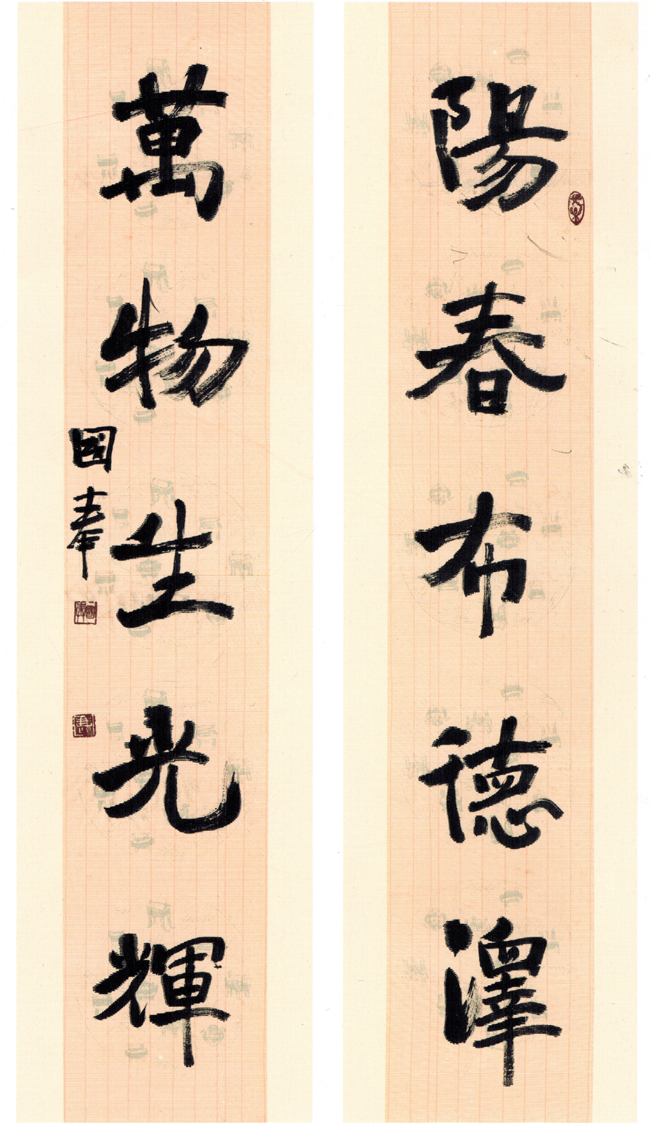 陽春布德澤
萬物生光輝
國奉